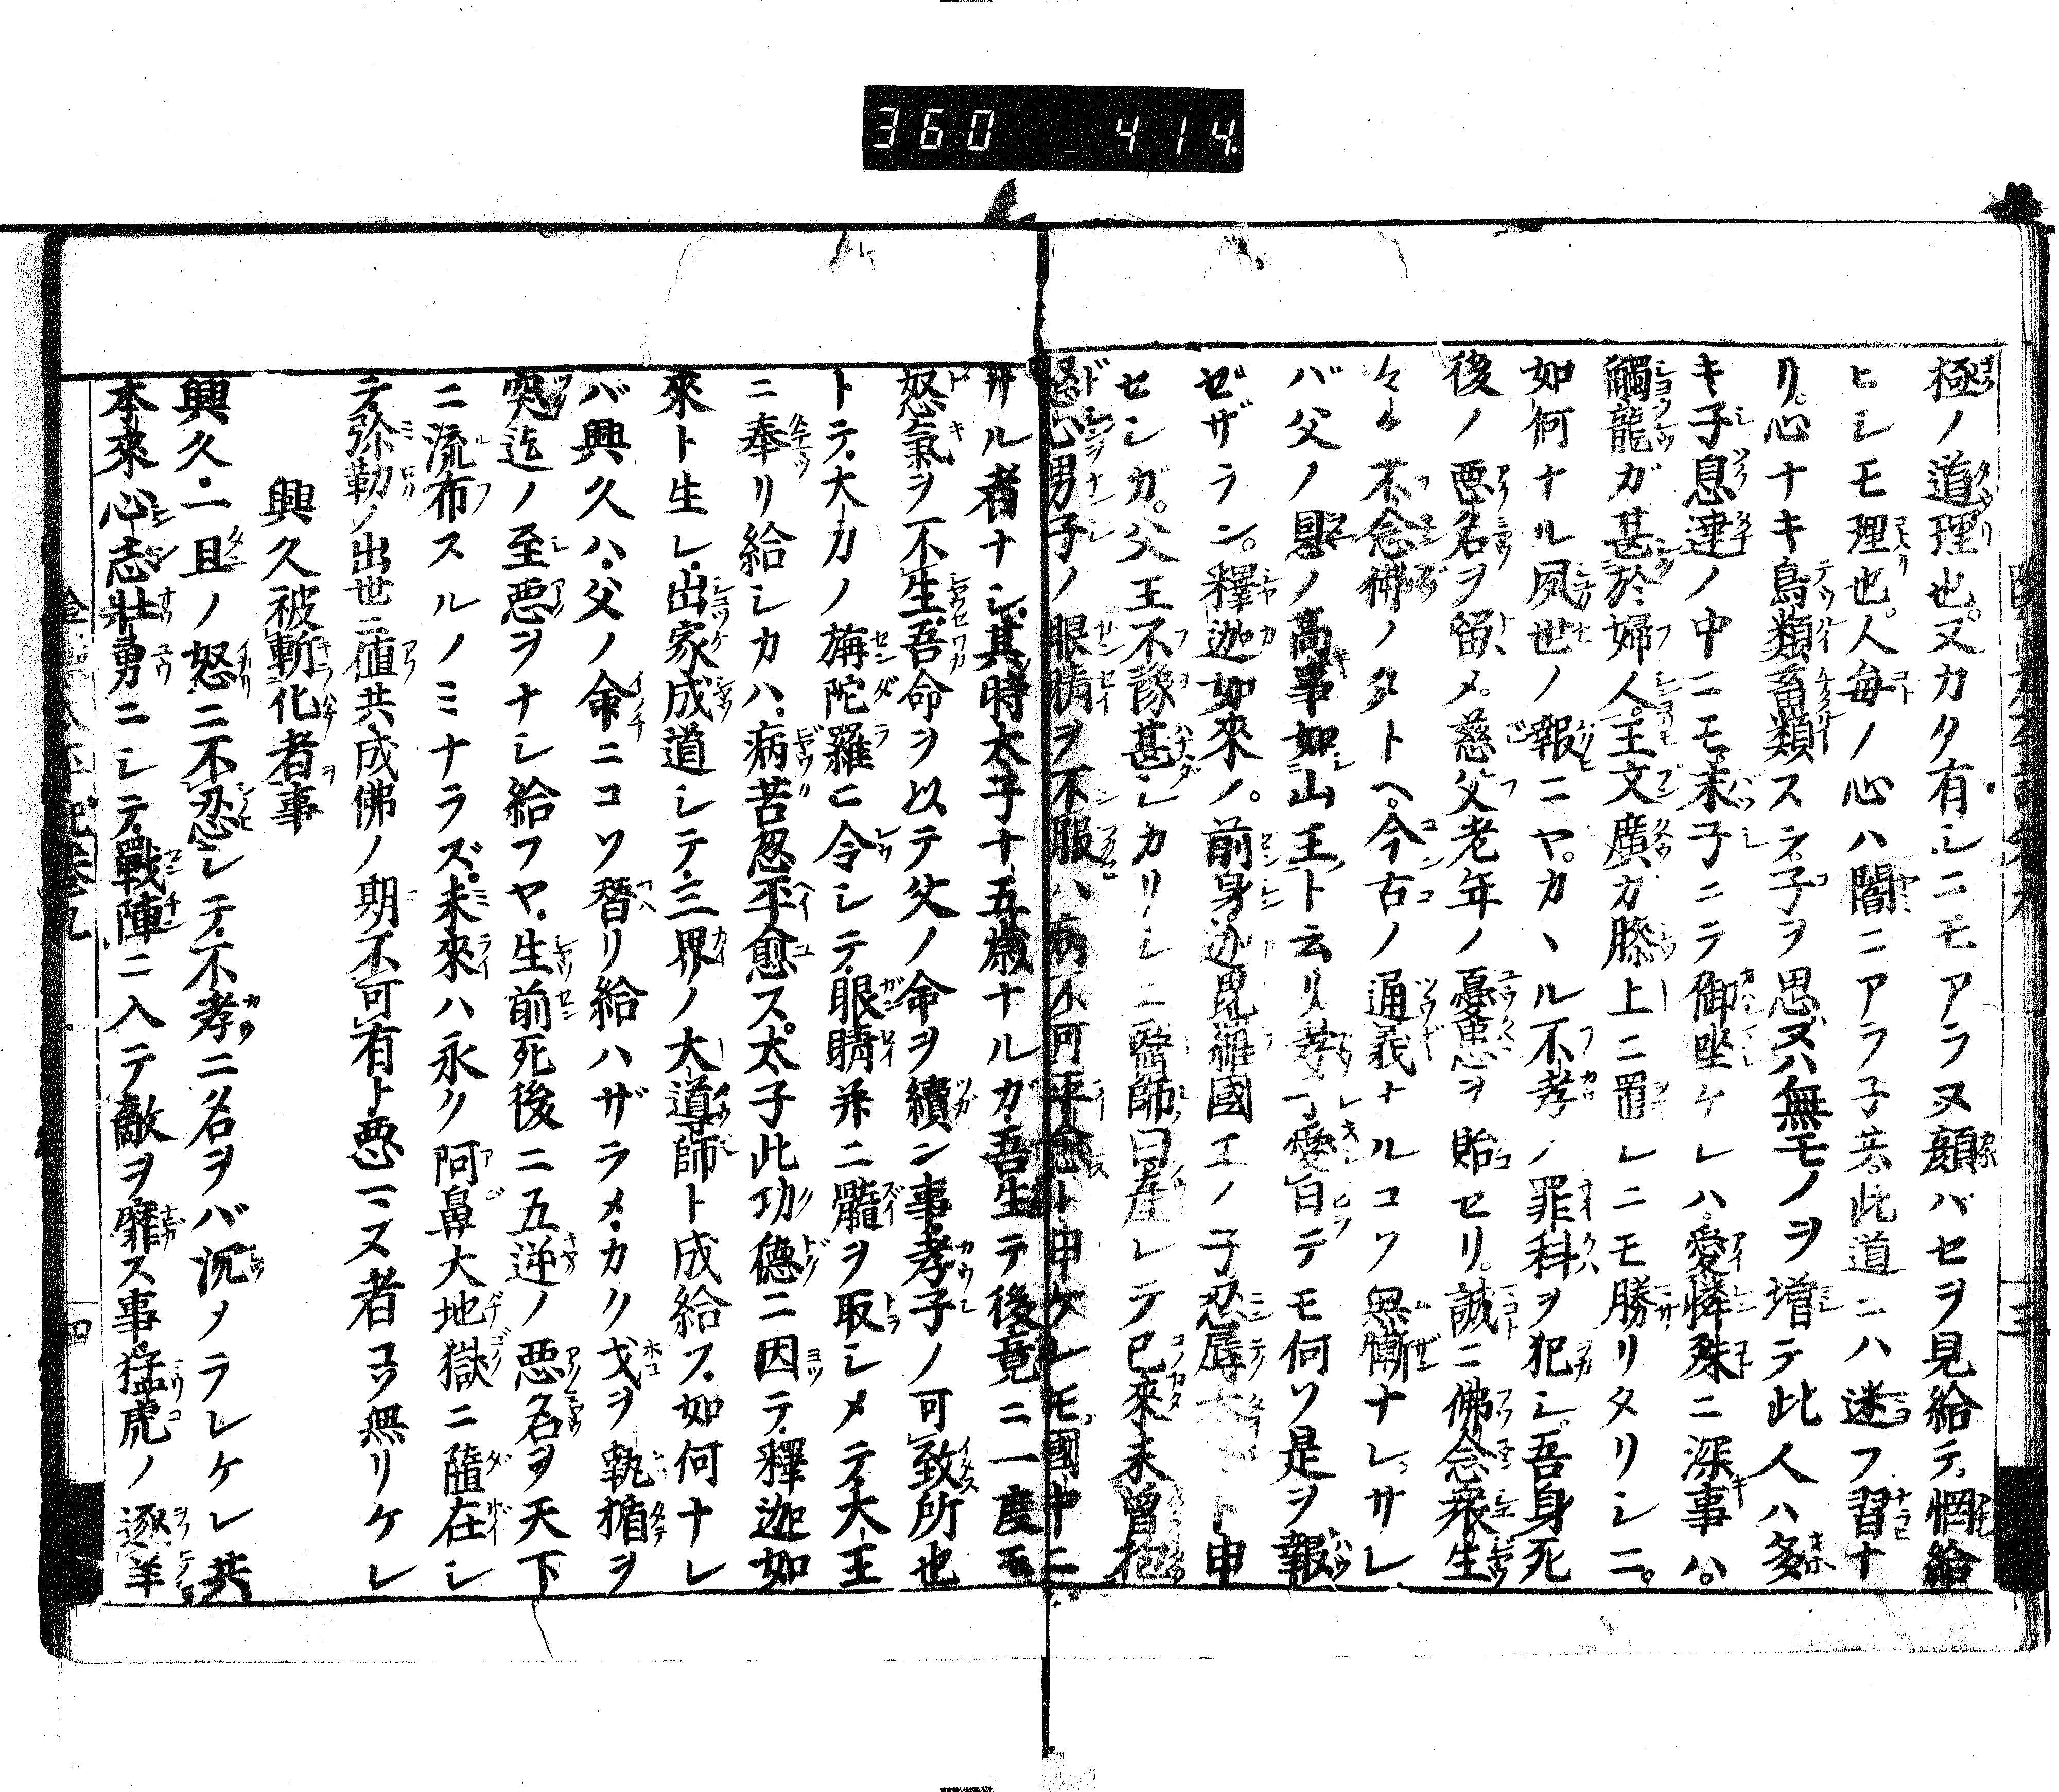 360 414
極ノ道理也。又カタ有シニモアラヌ顔バセヲ見給テ。惘給
ヒシモ理也。人毎ノ心ハ闇ニアラ子共。此道ニハ迷フ習ナ
リ。心ナキ鳥類畜類スラ。子ヲ思ヌハ無モノヲ増テ此人ハ多
キ子息達ノ中ニモ。末子ニテ御坐ケレハ。愛憐殊ニ深事ハ。
觸龍ガ甚於婦人。王文廣カ膝上ニ置レニモ勝リタリシニ。
如何ナル夙世ノ報ニヤ。カヽル不孝ノ罪科ヲ犯シ。吾身死
後ノ悪名ヲ留メ。慈父老年ノ憂患ヲ貽セリ。誠ニ佛念衆生
々々不念佛ノタトヘ。今古ノ通義ナルコソ無慚ナレ。サレ
バ父ノ恩ノ高事如山王ト云リ。孝 愛白テモ何ソ是ヲ報
ゼザラン。釋迦如來ノ。前身迦毘羅國王ノ子忍辱太 ト申
セシガ。父王不豫甚シカリシニ醫師曰産レテ已來未曾抱
怒心男子ノ眼睛ヲ不服ハ病不可平愈ト申ケレモ。國中ニ。
サル者ナシ。其時太子十五歳ナルガ。吾生テ後竟ニ一度モ
怒氣ヲ不生。吾命ヲ以テ父ノ命ヲ續ン事。孝子ノ可致所也
トテ。大カノ旃陀羅ニ令シテ。眼睛并ニ髓ヲ取シメテ。大王
ニ奉リ給シカハ。病苦忽平愈ス。太子此功徳ニ因テ。釋迦如
來ト生レ。出家成道シテ。三界ノ大導師ト成給フ。如何ナレ
バ興久ハ。父ノ命ニコソ替リ給ハザラメ。カク戈ヲ執楯ヲ
突迄ノ至悪ヲナシ給フヤ。生前死後ニ五逆ノ悪名ヲ天下
ニ流布スルノミナラズ。未來ハ永ク阿鼻大地獄ニ墮在シ
テ。弥勒ノ出世ニ値共。成佛ノ期不可有ト。悪マヌ者コソ無リケレ
興久被斬化者事
興久。一旦ノ怒ニ不忍シテ。不孝ニ名ヲバ沉メラレケレ共
本來心志壯勇ニシテ。戰陣ニ入テ敵ヲ靡ス事。猛虎ノ逐羊